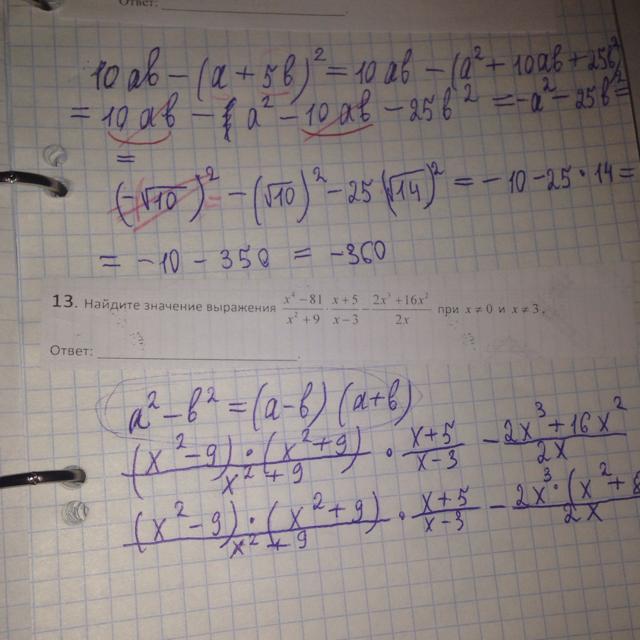 Ответ:
10ab − (a + 5b)² = 10ab − (a² + 10ab + 25b²
= 10ab − a² − 10ab − 25b² = −a² − 25b² =
=
(−√10)² − (√10)² − 25(√14)² = −10 − 25 · 14 =
= −10 − 350 = −360
13. Найдите значение выражения (x⁴ − 81)/(x² + 9) · (x + 5)/(x − 3) − (2x³ + 16x²)/(2x) при x ≠ 0 и x ≠ 3.
Ответ:
a² − b² = (a − b)(a + b)
((x² − 9) · (x² + 9))/(x² + 9) · (x + 5)/(x − 3) − (2x³ + 16x²)/(2x)
((x² − 9) · (x² + 9))/(x² + 9) · (x + 5)/(x − 3) − (2x³ · (x² + 8)/(2x)